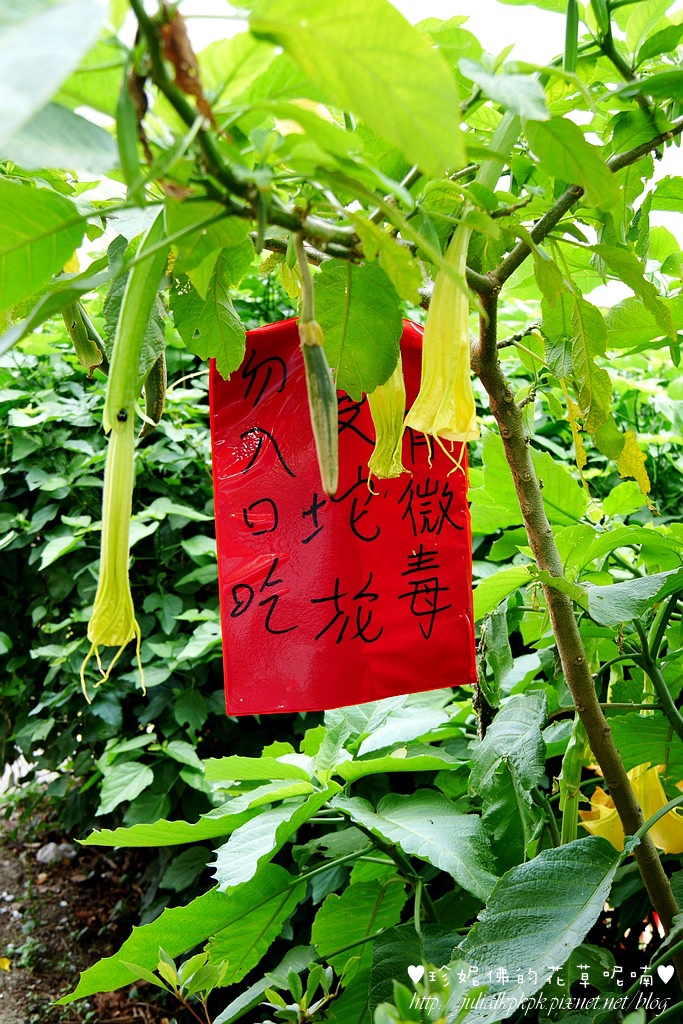 有微毒
曼坨花
勿入口吃
♥珍妮佛的花草呢喃♥
http://julialkpkpk.pixnet.net/blog